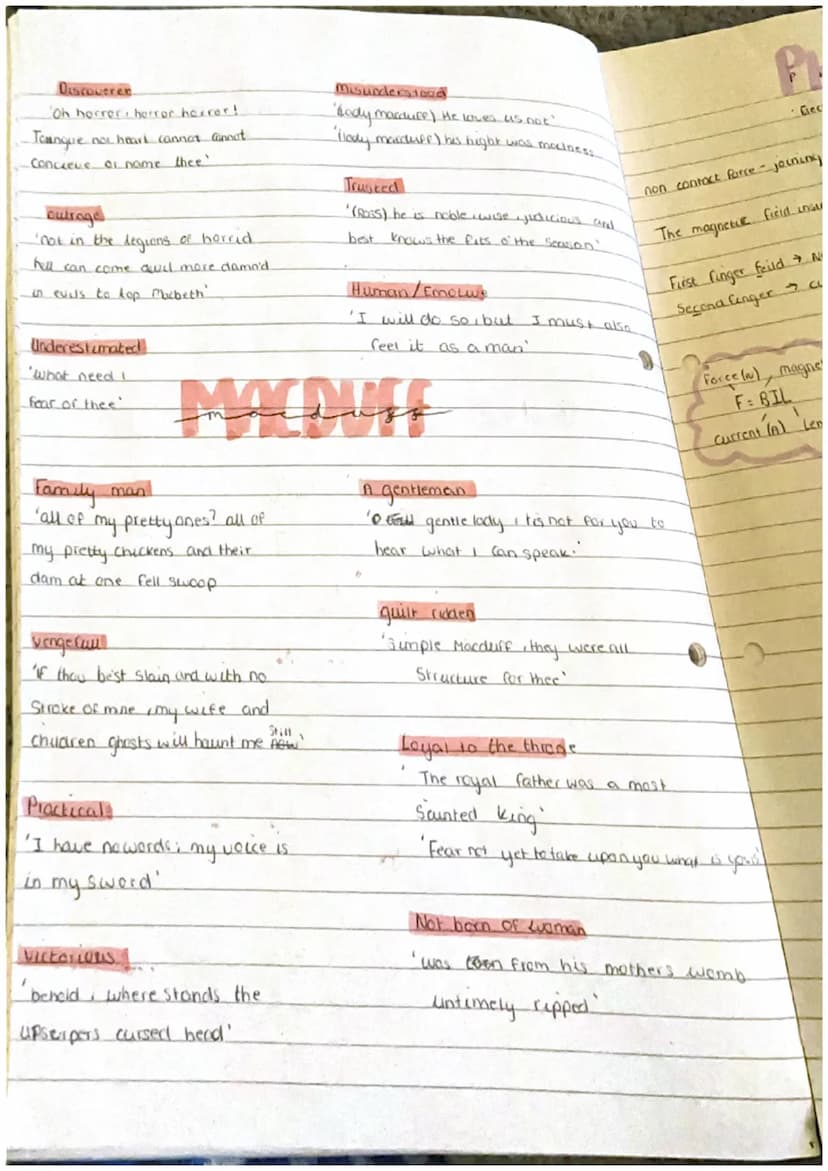 Discoverer
'Oh horror, horror horror!
Toungue nor heart cannot cannot
concieve or name thee'
outrage
'not in the legions of horrid
hell can come devil more damn'd
in evils to top Macbeth'
Underestimated
'what need I
fear of thee'
MACDUFF
macduff
Family man
'all of my pretty ones? all of
my pretty chickens and their
dam at one fell swoop
vengefull
'if thou be'st slain and with no
Stroke of mine, my wife and
children ghosts will haunt me still'
Practical
'I have no words; my voice is
in my sword'
victorious
'behold, where stands the
upserpers cursed head'
Misunderstood
'(lady macduff) He loves us not'
'(lady macduff) his flight was madness
Trusted
'(Ross) he is noble, wise, judicious and
best knows the fits o'the season'
Human/Emotive
'I will do so, but I must also
feel it as a man'
A gentleman
'O gentle lady, tis not for you to
hear what I can speak.'
guilt ridden
'Simple Macduff, they were all
Structure for thee'
Loyal to the throne
'The royal father was a most
Sainted King'
'Fear not yet to take upon you what is yours'
Not born of woman
'was from his mothers womb
untimely ripped'
non contact force - joining
The magnetic field
First finger feild → 
Second finger → 
Force (N), magne
F = BIL
current (A) Len